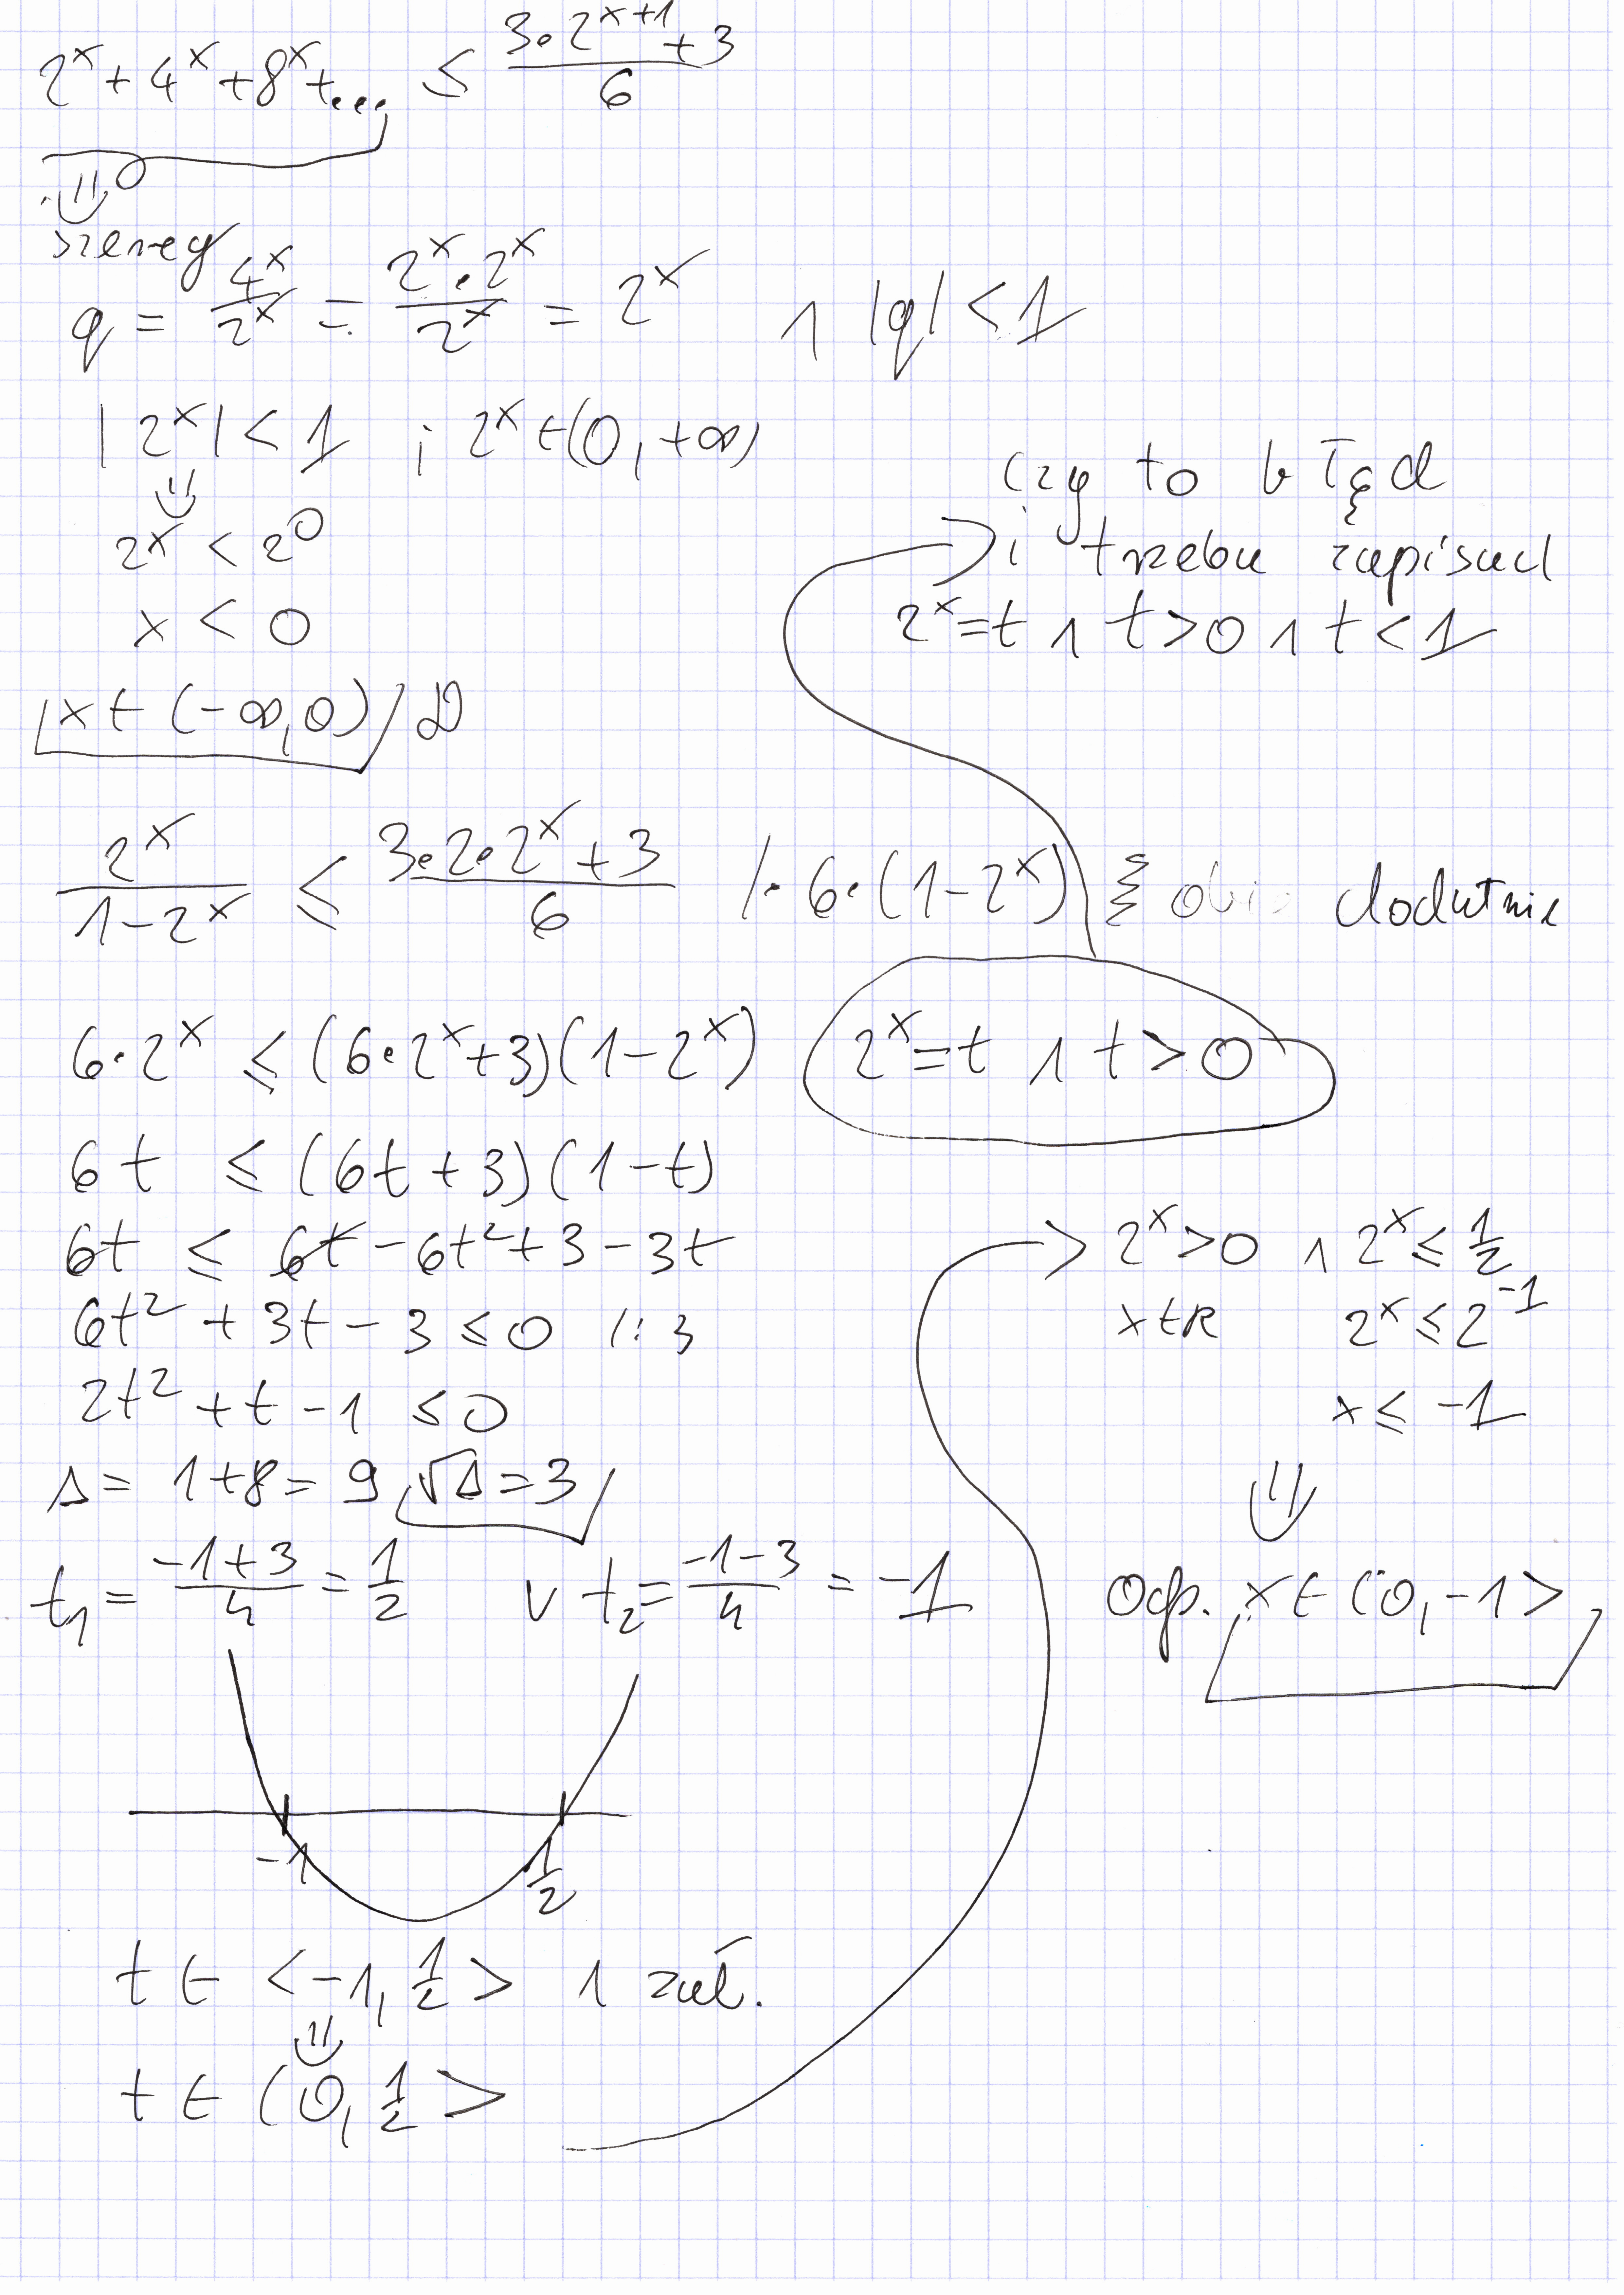 2^x + 4^x + 8^x + ... ≤ (3·2^(x+1) + 3)/6
szereg
q = 4^x/2^x = (2^x·2^x)/2^x = 2^x ∧ |q| < 1
|2^x| < 1 i 2^x ∈ (0, +∞)
2^x < 2^0
x < 0
x ∈ (-∞, 0) D
czy to błąd
i trzeba zapisać
2^x = t ∧ t > 0 ∧ t < 1
2^x/(1-2^x) ≤ (3·2·2^x + 3)/6 /·6·(1-2^x) dodatnie
6·2^x ≤ (6·2^x + 3)(1-2^x) 2^x = t ∧ t > 0
6t ≤ (6t + 3)(1-t)
6t ≤ 6t - 6t² + 3 - 3t
6t² + 3t - 3 ≤ 0 /:3
2t² + t - 1 ≤ 0
Δ = 1+8 = 9 √Δ = 3
t₁ = (-1+3)/4 = 1/2 ∨ t₂ = (-1-3)/4 = -1
-1 1/2
t ∈ <-1, 1/2> ∧ zał.
t ∈ (0, 1/2>
2^x > 0 ∧ 2^x ≤ 1/2
x ∈ R 2^x ≤ 2^(-1)
x ≤ -1
Odp. x ∈ (0, -1>